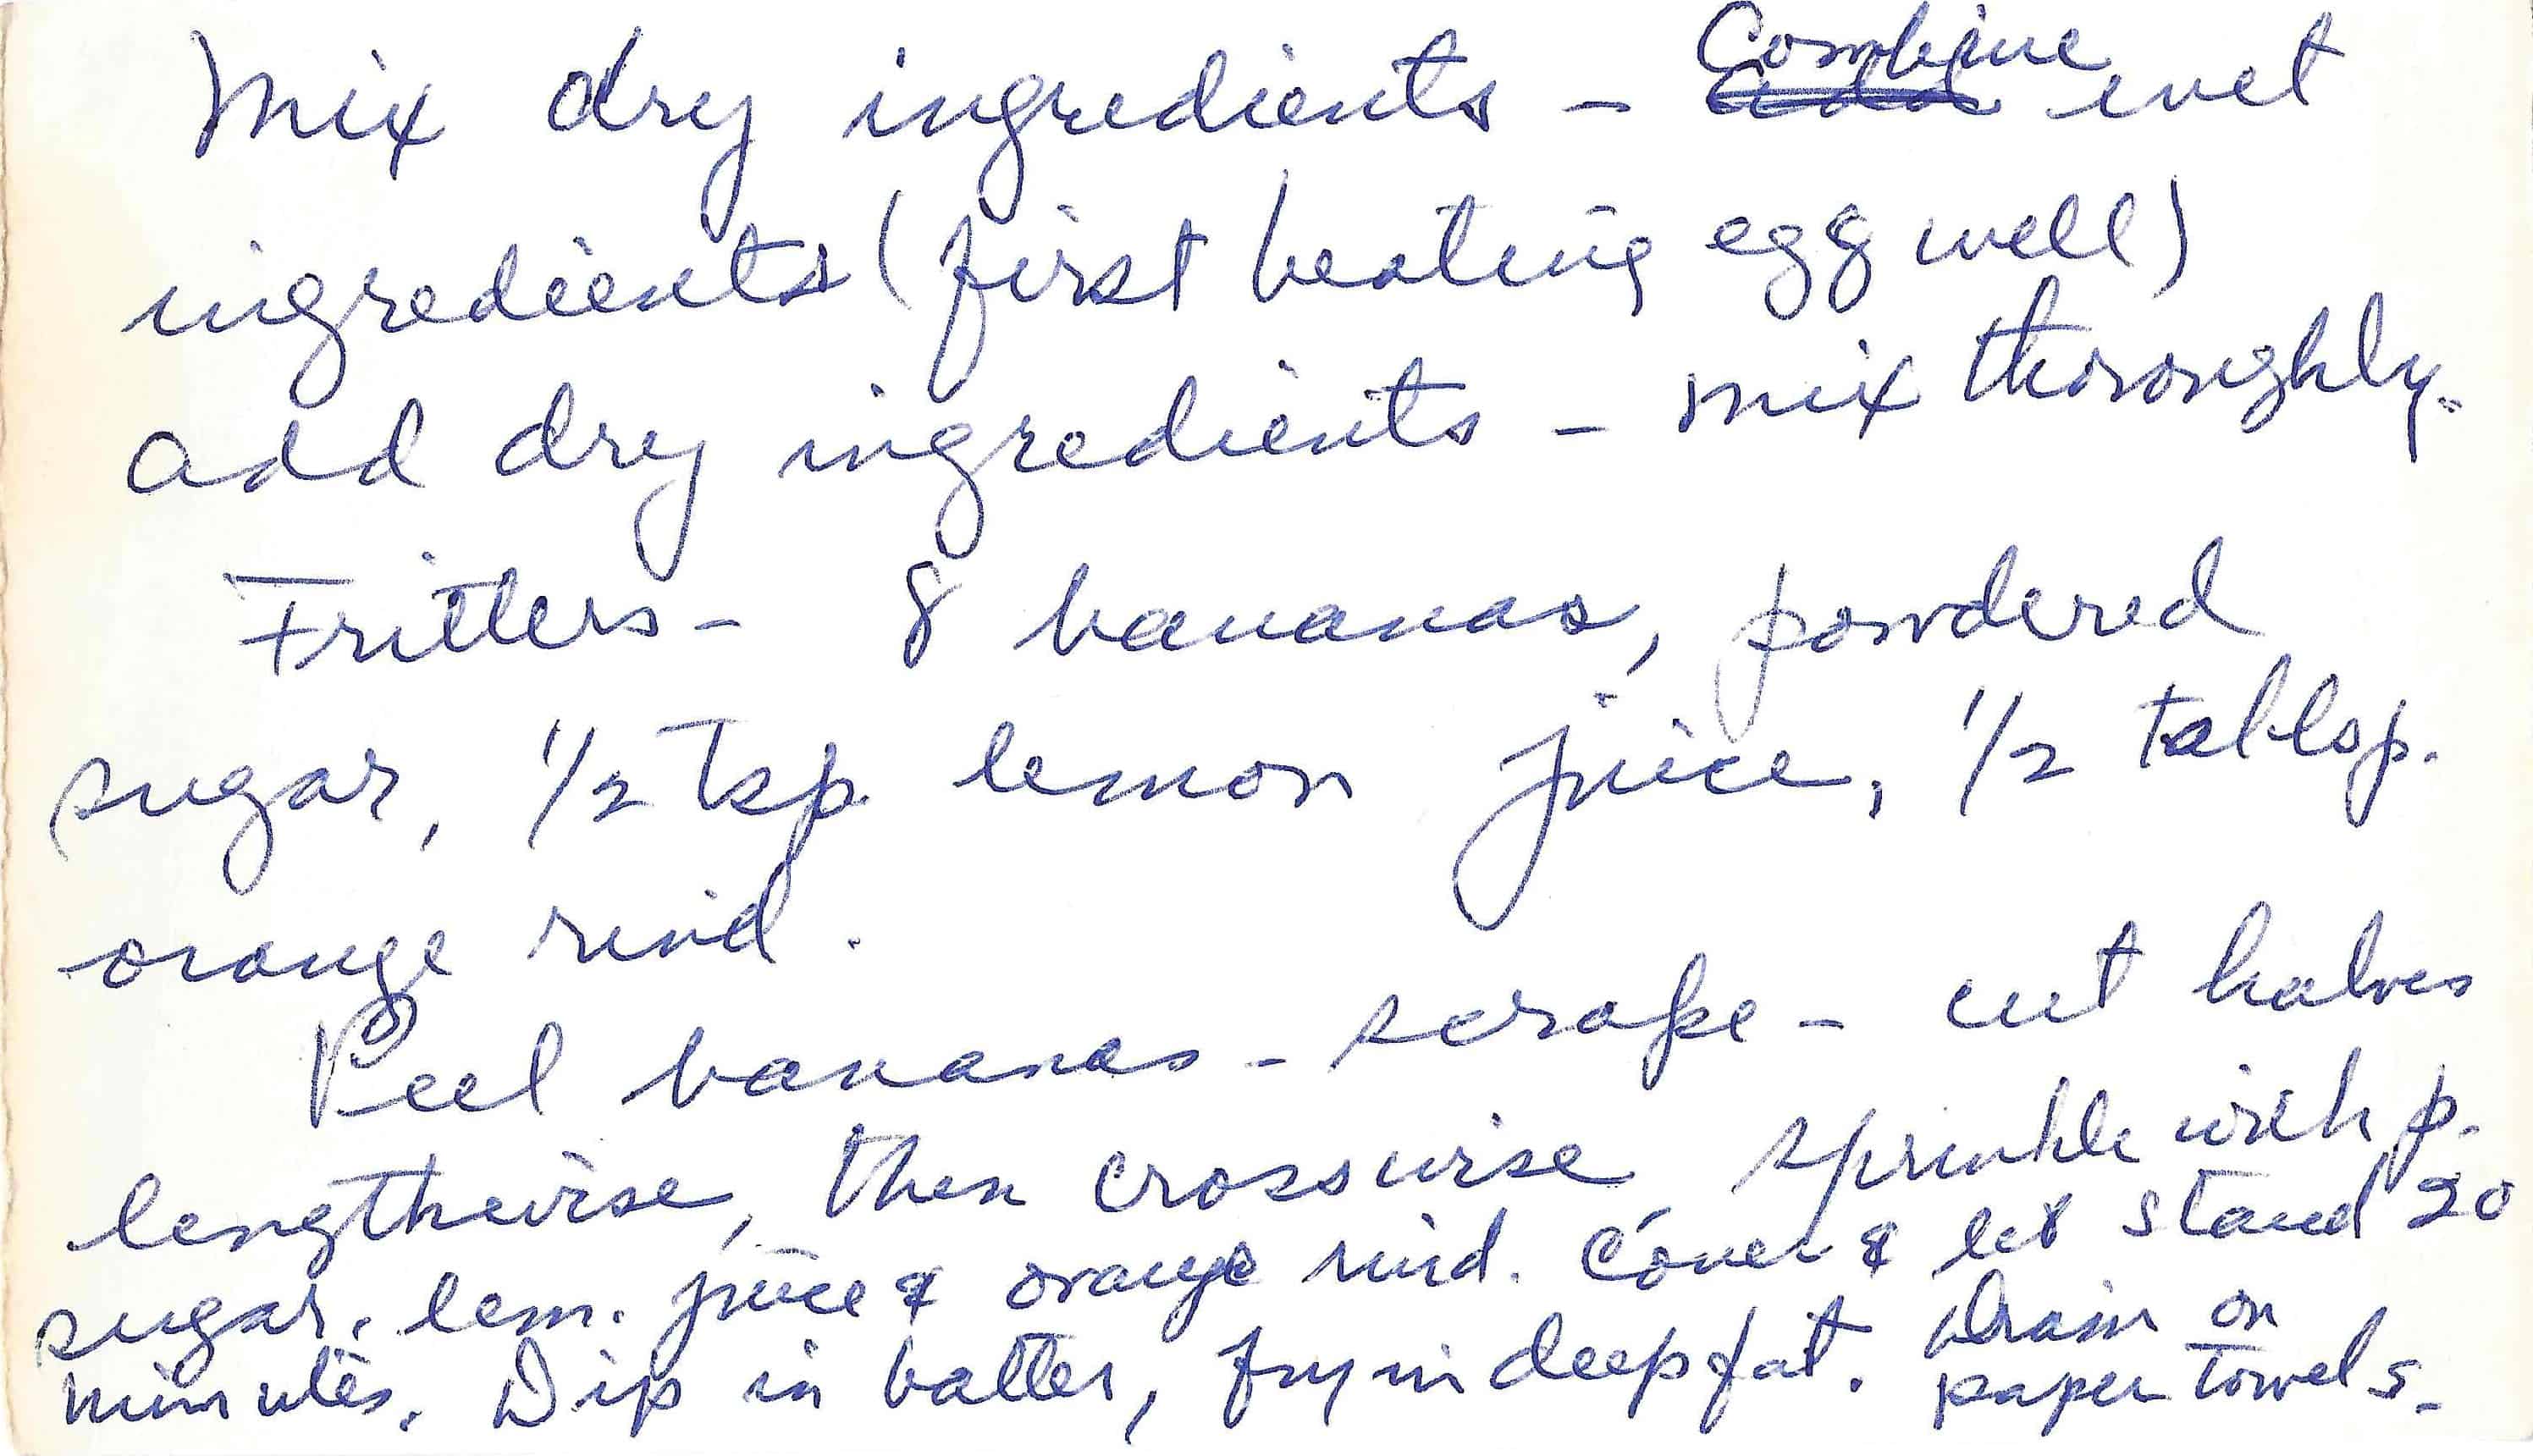 Mix dry ingredients - Combine wet
ingredients (first beating egg well)
add dry ingredients - mix thoroughly.
Fritters - 8 bananas, powdered
sugar, 1/2 tsp. lemon juice, 1/2 tablsp.
orange rind.
Peel bananas - scrape - cut halves
lengthwise, then crosswise, sprinkle with p.
sugar, lem. juice & orange rind. Cover & let stand 20
minutes. Dip in batter, fry in deep fat. Drain on
paper towels.